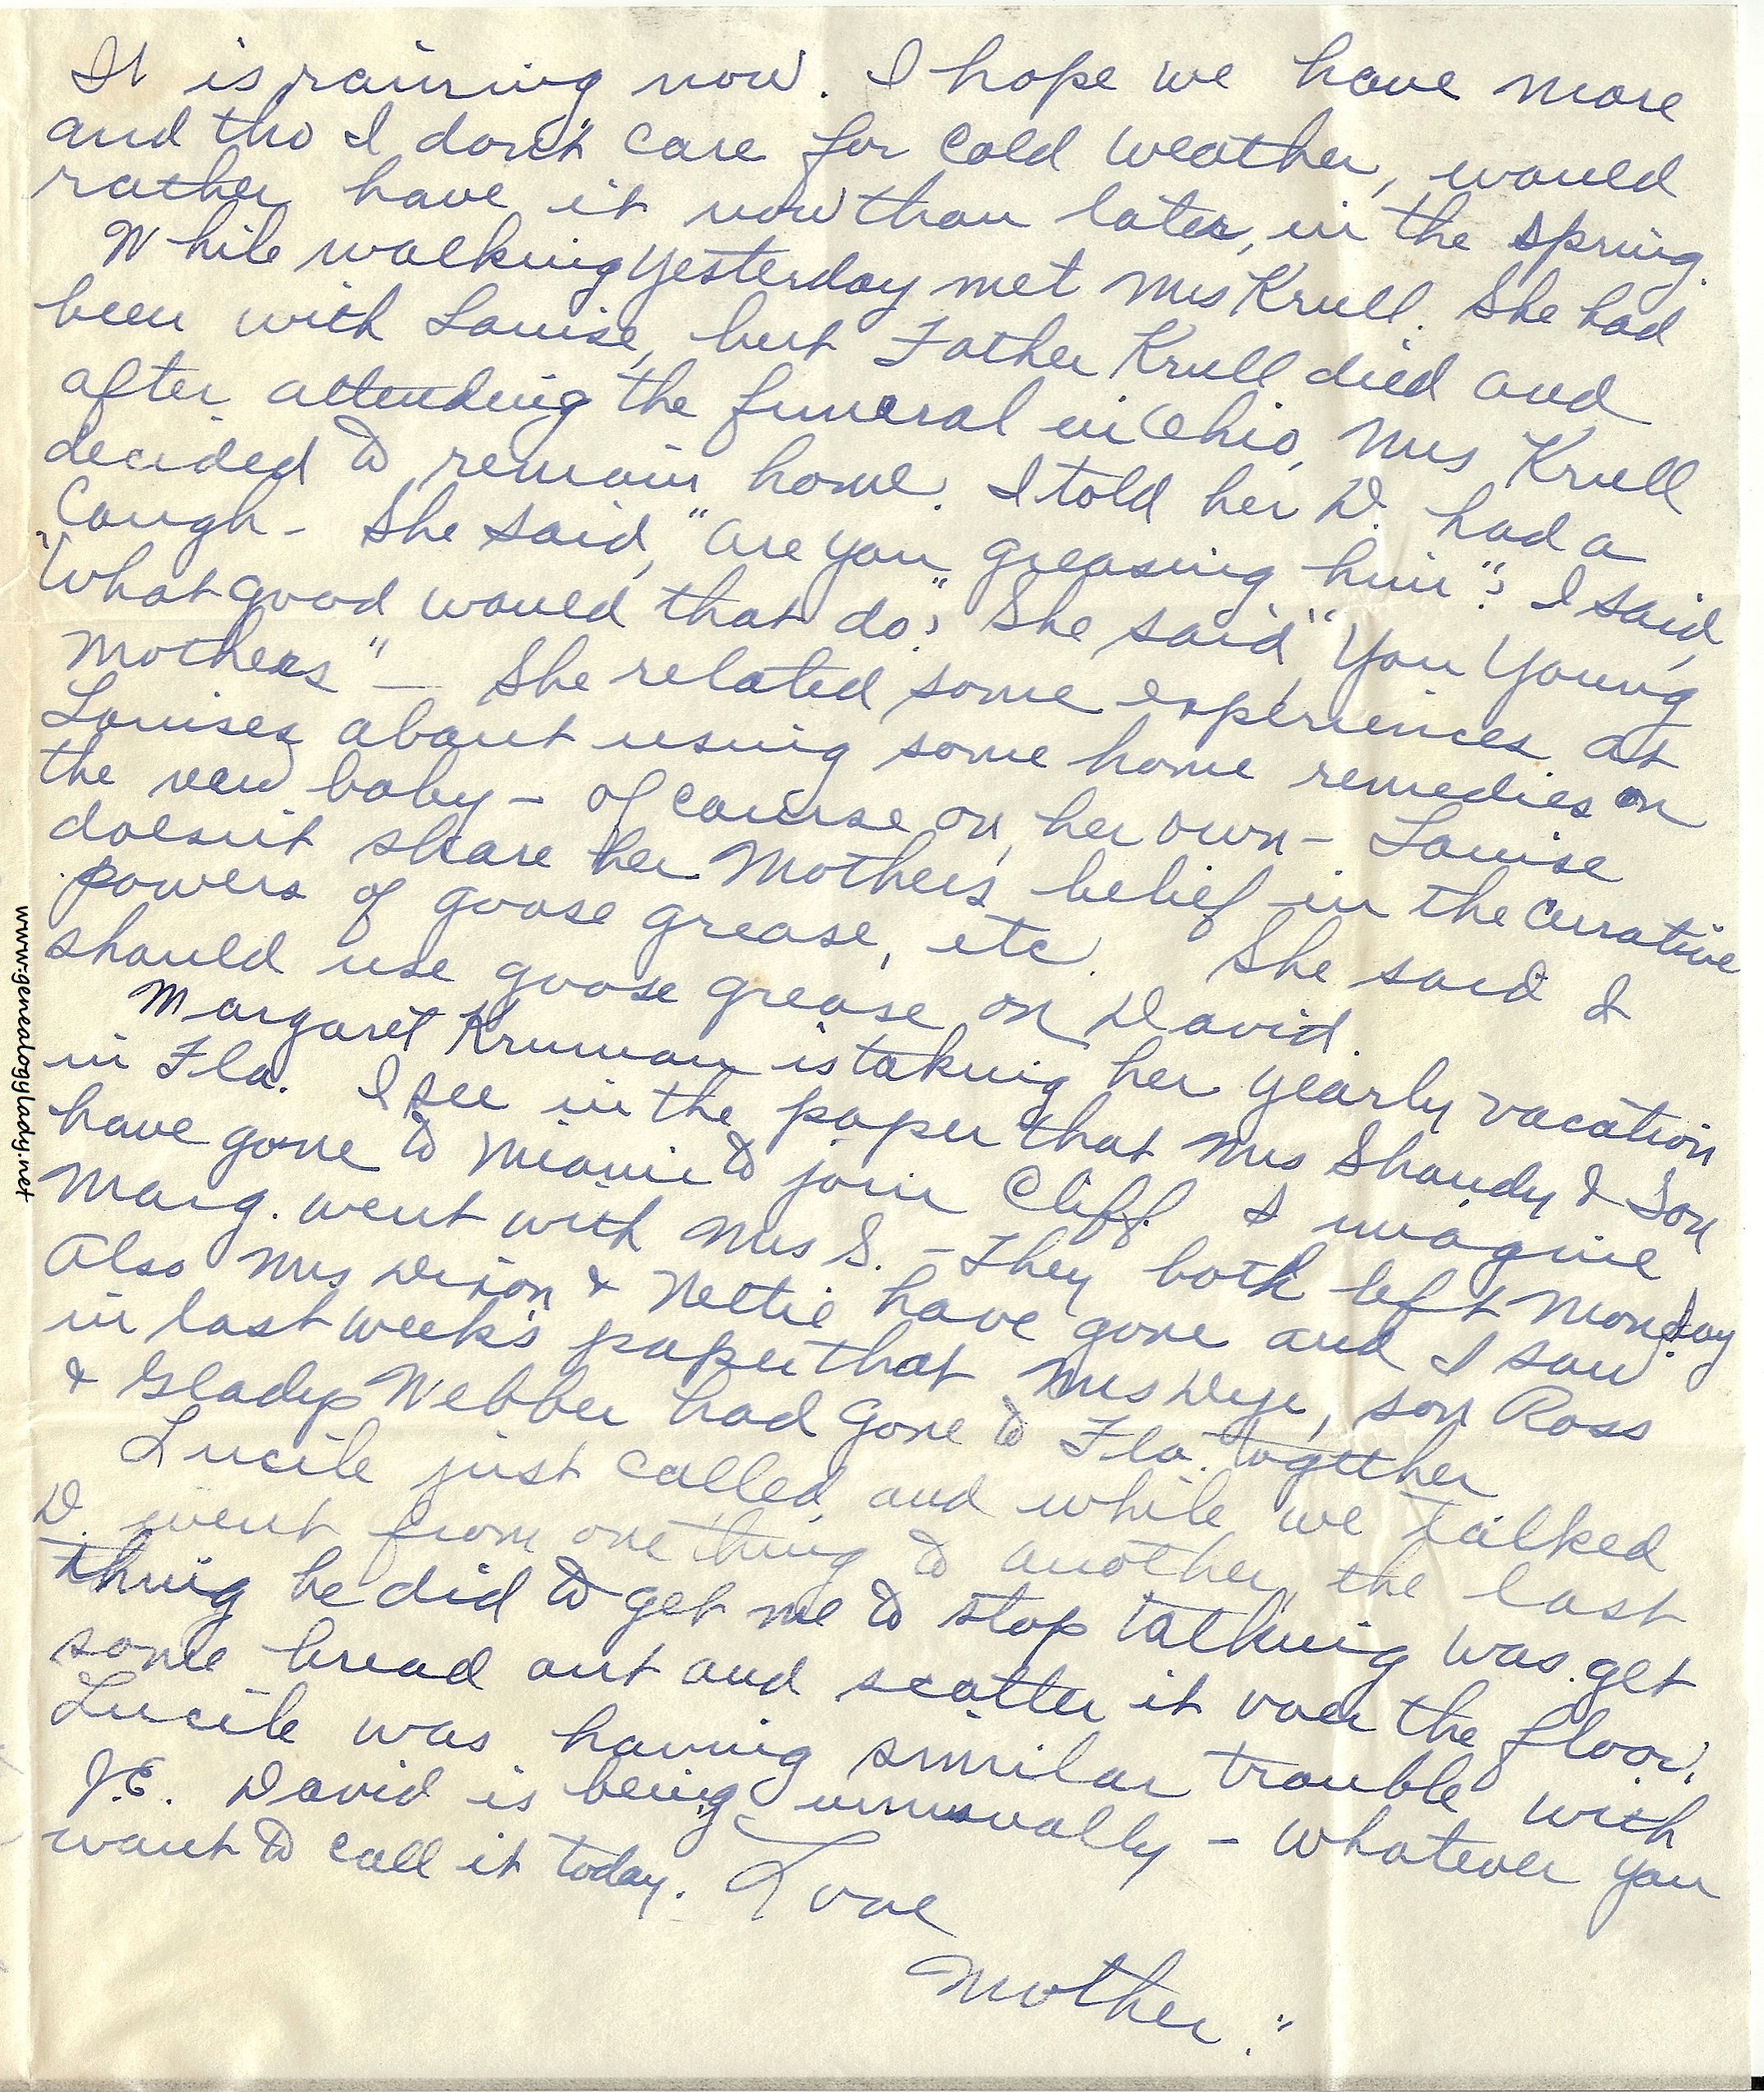 It is raining now. I hope we have more
and tho I don't care for cold weather, would
rather have it now than later, in the spring.
While walking yesterday met Mrs Krull. She had
been with Louise, but Father Krull died and
after attending the funeral in Ohio, Mrs Krull
decided to remain home. I told her D. had a
cough - She said, "are you greasing him"? I said,
"What good would that do?" She said "You Young
Mothers" — She related some experiences at
Louises about using some home remedies on
the new baby - of course on her own - Louise
doesn't share her Mother's belief in the curative
powers of goose grease, etc. She said I
should use goose grease on David.
Margaret Kruman is taking her yearly vacation
in Fla. I see in the paper that Mrs Shandy & Son
have gone to Miami to join Cliff. I imagine
Marg. went with Mrs S. - They both left Monday.
Also Mrs Dixon & Nettie have gone and I saw
in last week's paper that Mrs Dye, son Ross
& Gladys Webber had gone to Fla. together
Lucile just called, and while we talked
D. went from one thing to another, the last
thing he did to get me to stop talking was get
some bread out and scatter it over the floor.
Lucile was having similar trouble with
J.E. David is being unusually - whatever you
want to call it today. Love
Mother."
www.genealogylady.net